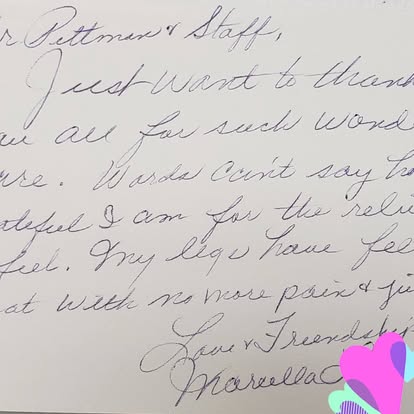 r Pittman & Staff,
Just want to thank
ou all for such wond
are. Words can't say ho
ateful I am for the relie
feel. My legs have fel
at with no more pain & ju
Love & Friendship
Marcella